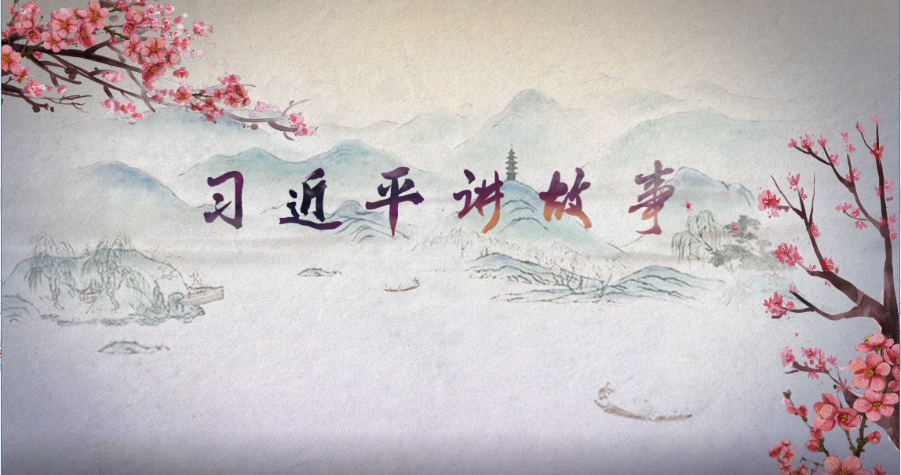 习近平讲故事